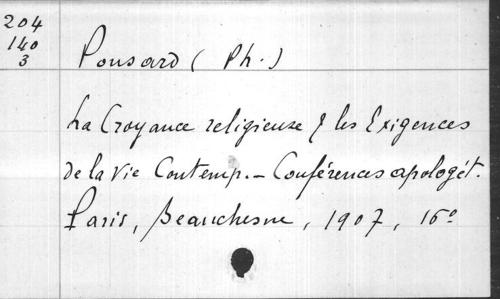 204
140
3
Ponsard ( Ph. )
La Croyance religieuse & les Exigences
de la Vie Contemp. – Conférences apologét.
Paris, Beauchesne, 1907, 16º